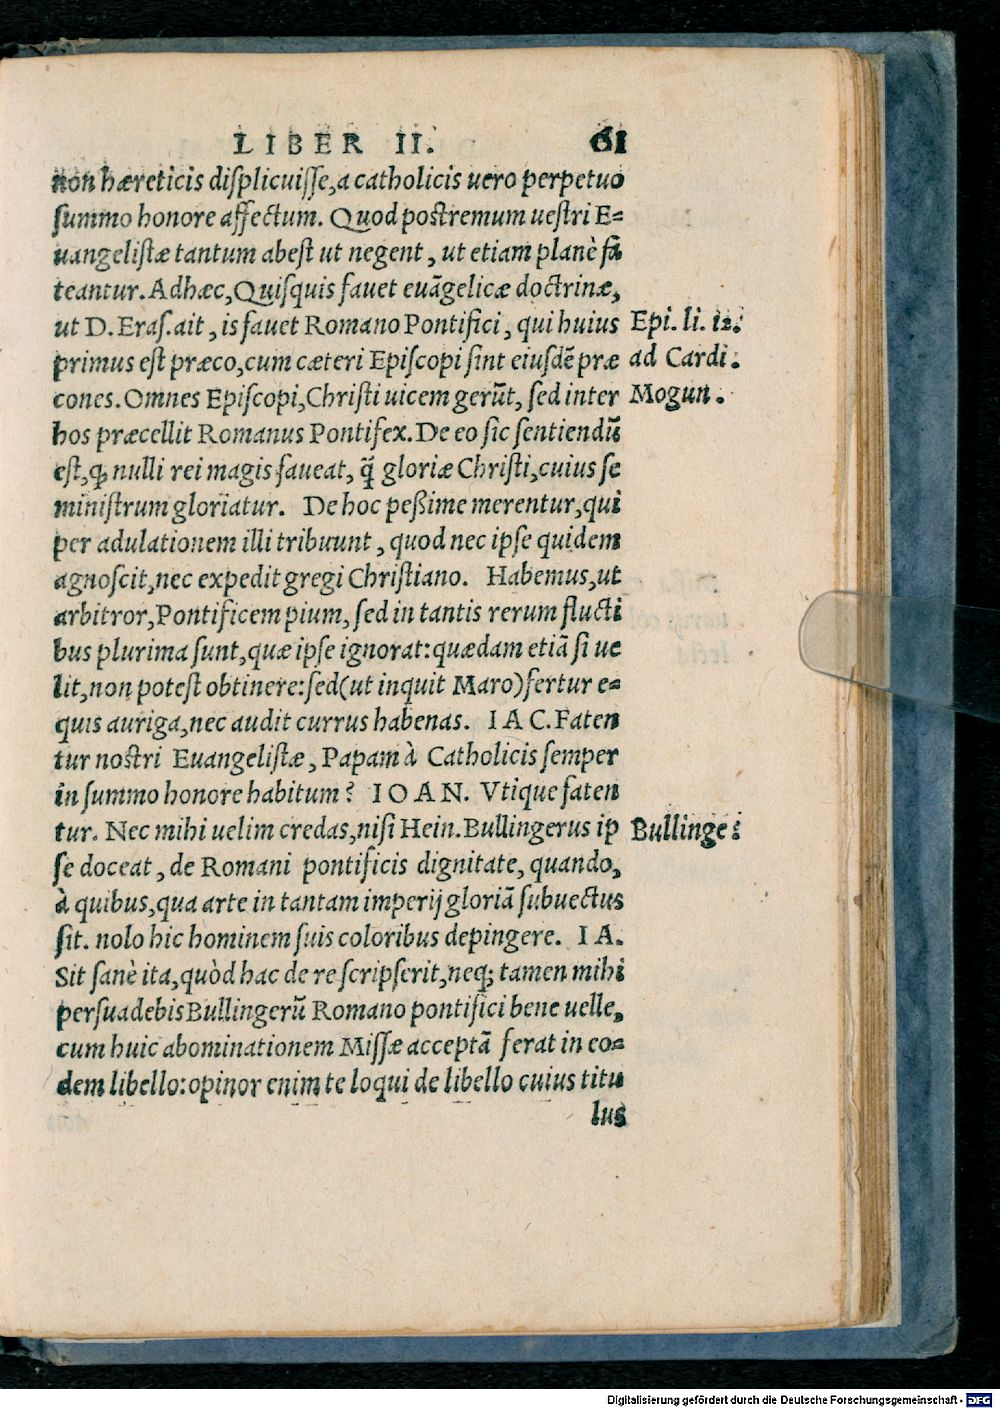 LIBER II. 61
non hæreticis displicuisse, a catholicis uero perpetuo
summo honore affectum. Quod postremum uestri E=
uangelistæ tantum abest ut negent, ut etiam planè fa
teantur. Adhæc, Quisquis fauet euãgelicæ doctrinæ,
ut D. Eras. ait, is fauet Romano Pontifici, qui huius
primus est præco, cum cæteri Episcopi sint eiusdẽ præ
cones. Omnes Episcopi, Christi uicem gerũt, sed inter
hos præcellit Romanus Pontifex. De eo sic sentiendũ
est, ꝙ nulli rei magis faueat, q̃ gloriæ Christi, cuius se
ministrum gloriatur. De hoc peßime merentur, qui
per adulationem illi tribuunt, quod nec ipse quidem
agnoscit, nec expedit gregi Christiano. Habemus, ut
arbitror, Pontificem pium, sed in tantis rerum flucti
bus plurima sunt, quæ ipse ignorat: quædam etiã si ue
lit, non potest obtinere: sed (ut inquit Maro) fertur e=
quis auriga, nec audit currus habenas. IAC. Faten
tur nostri Euangelistæ, Papam à Catholicis semper
in summo honore habitum? IOAN. Vtique faten
tur. Nec mihi uelim credas, nisi Hein. Bullingerus ip
se doceat, de Romani pontificis dignitate, quando,
à quibus, qua arte in tantam imperij gloriã subuectus
sit. nolo hic hominem suis coloribus depingere. IA.
Sit sanè ita, quòd hac de re scripserit, neq; tamen mihi
persuadebis Bullingerũ Romano pontifici bene uelle,
cum huic abominationem Missæ acceptã ferat in eo=
dem libello: opinor enim te loqui de libello cuius titu
lus
Epi. li. 12.
ad Cardi.
Mogun.
Bullinge:
Digitalisierung gefördert durch die Deutsche Forschungsgemeinschaft - DFG